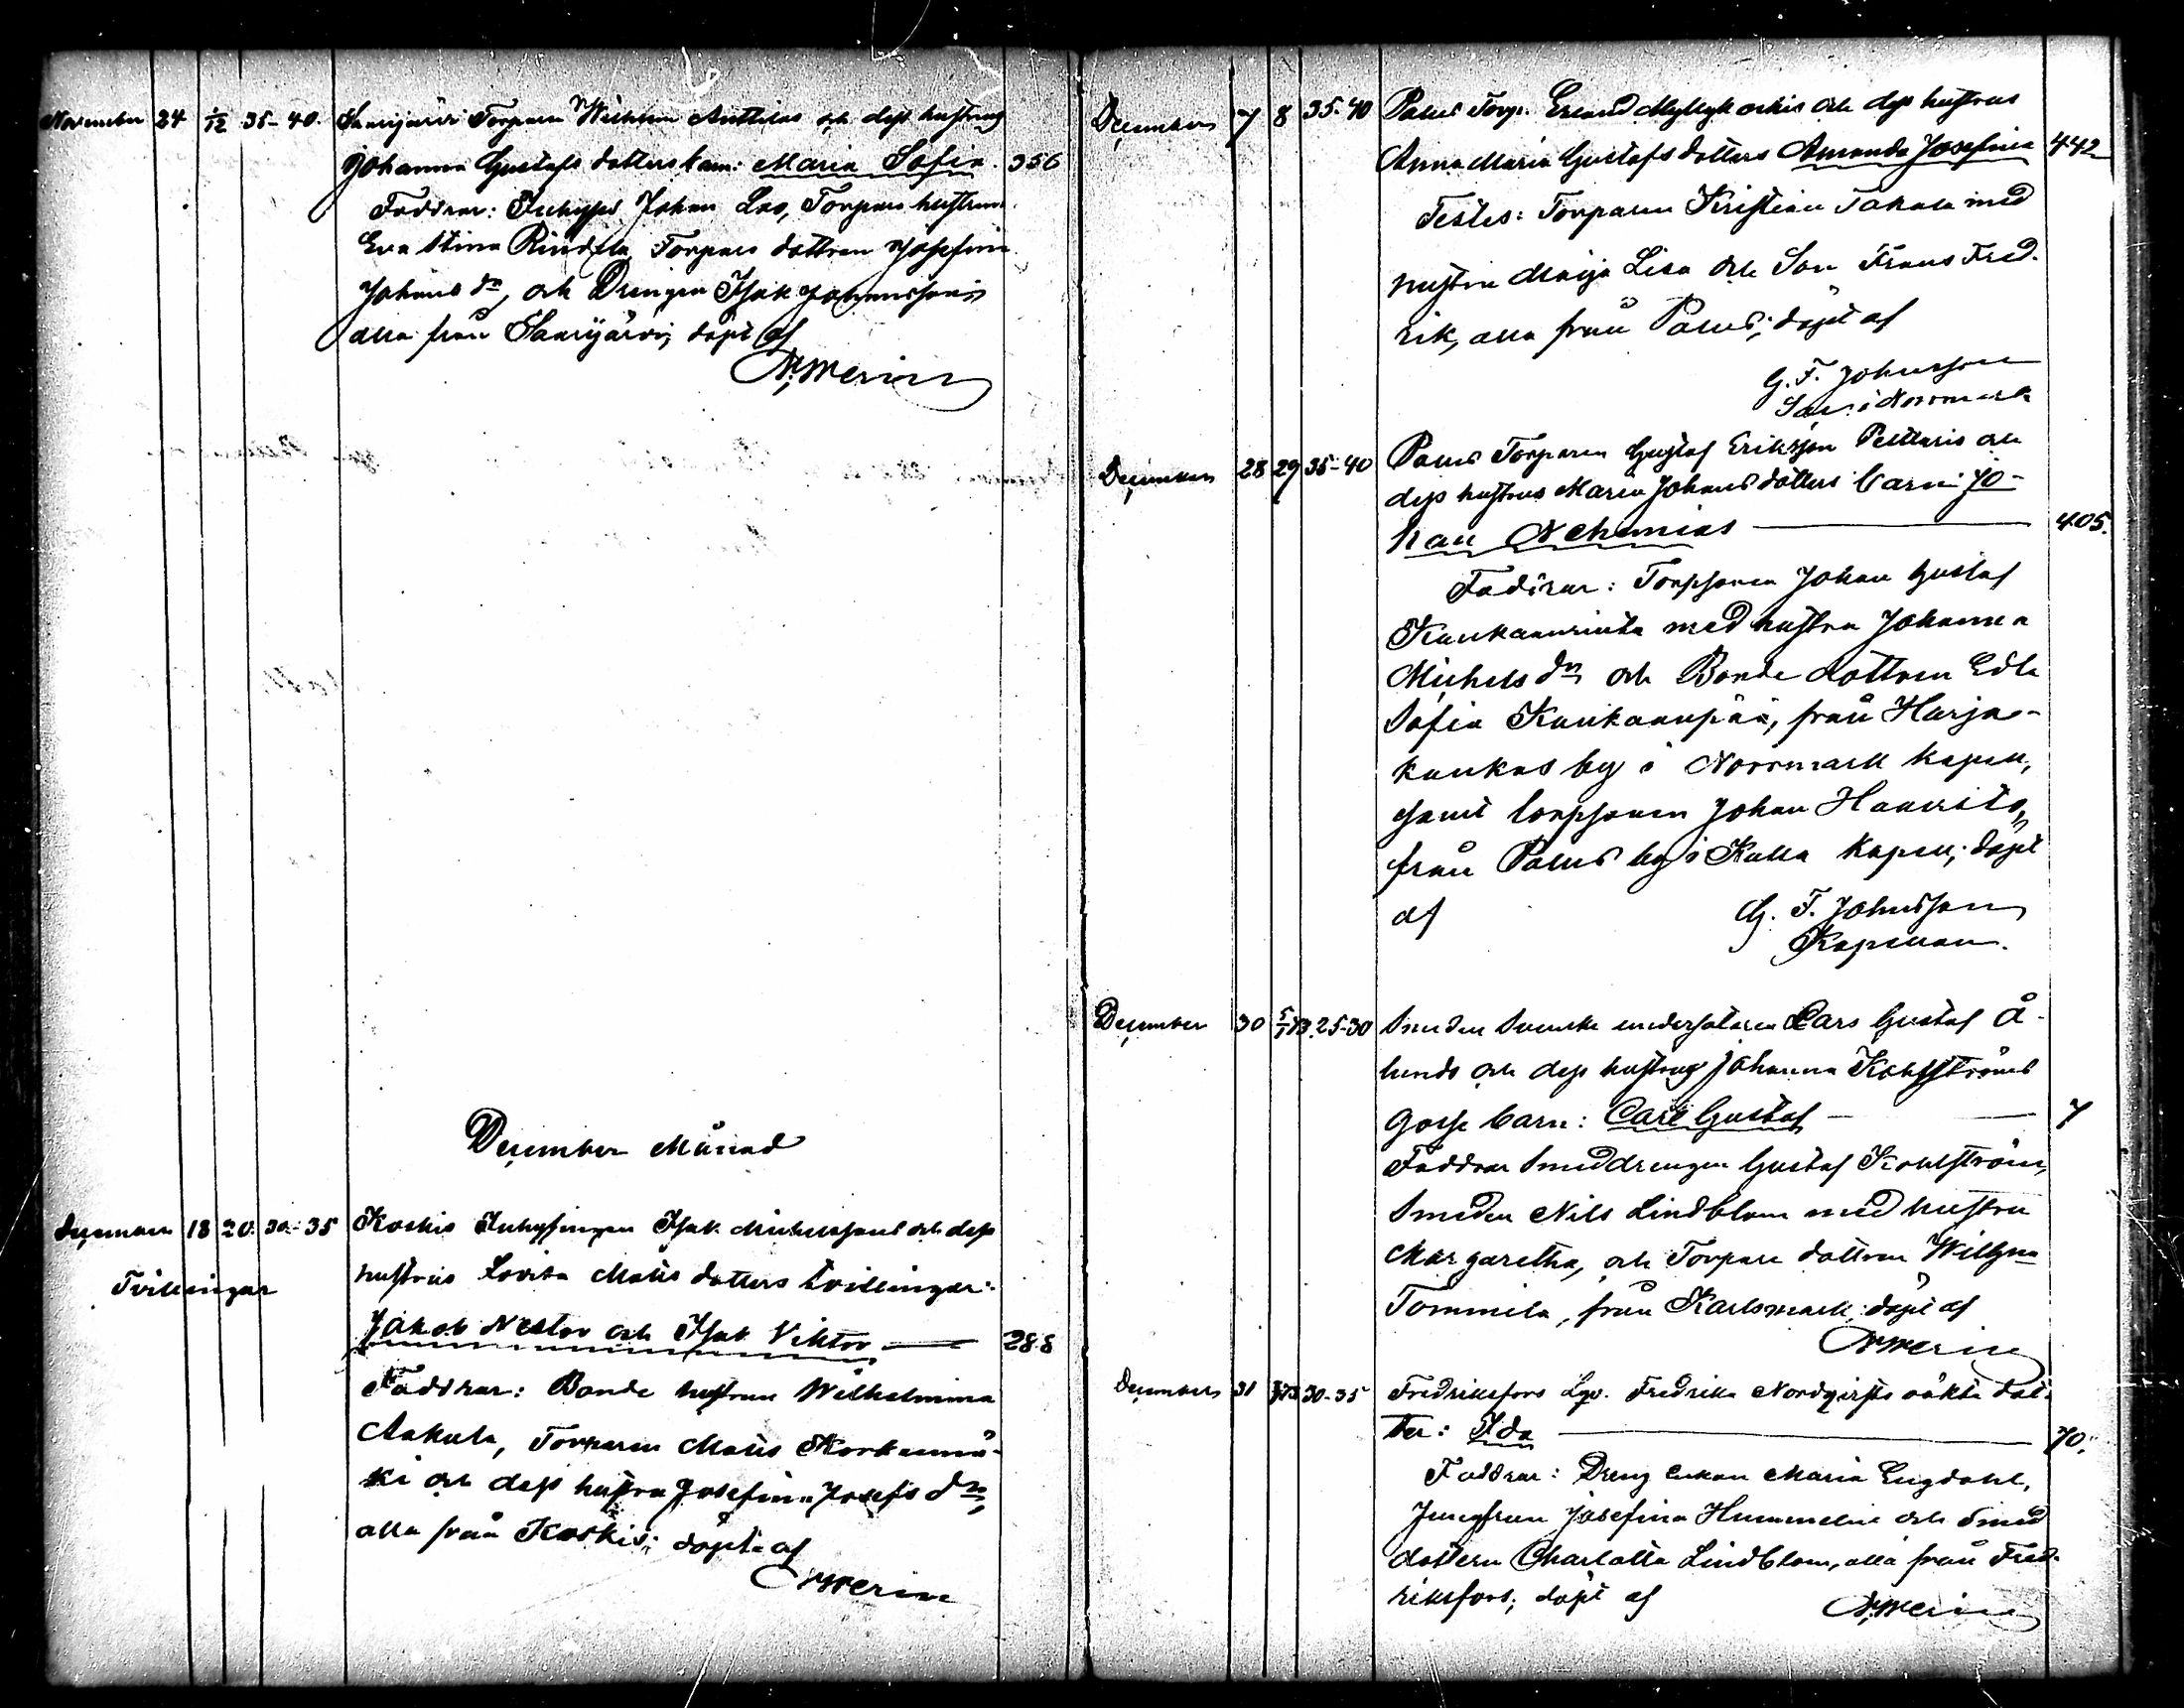 November 24 1/12 35-40. Saarijärvi Torparen Wilhelm Anttilas och dess hustrus
Johanna Gustafs dotters barn: Maria Sofia. 356
Faddrar: Inhyses Johan Lao, Torpare hustrun
Eva Stina Rindela, Torpare dottren Josefina
Johans dr, och Drengen Isak Johansson
alla från Saarijärvi; döpt af
N. Merin
December Månad
December 18 20. 30-35 Koskis Inhysingen Isak Michelssons och dess
Tvillingar
hustrus Lovisa Mats dotters tvillingar:
Jakob Nestor och Isak Viktor 288
Faddrar: Bonde hustrun Wilhelmina
Aakula, Torparen Mats Korkeamä-
ki och dess hustru Josefina Josefs dr,
alla från Koskis; döpte af
Merin
December 7 8 35-40 Pamus Torp. Erland Myllykoskis och dess hustrus
Anna Maria Gustafs dotters Amanda Josefina 442
Testes: Torparen Kristian Takala med
hustru Maija Lisa och Son Frans Fred-
rik, alla från Pamus; döpt af
G. F. Johnsson
Sac. i Norrmark
December 28 29 35-40 Pamus Torparen Gustaf Eriksson Peltaris och
dess hustrus Maria Johans dotters barn: Jo-
han Nehemias 405.
Faddrar: Torpparen Johan Gustaf
Kankaanrinta med hustru Johanna
Michels dr och Bonde dottren Edla
Sofia Kankaanpää, från Harja-
kankas by i Norrmark kapell,
samt torpparen Johan Haavisto,
från Pamus by i Kulla Kapell; döpt
af G. F. Johnsson
Kapellan.
December 30 5/1 73. 25-30 Smeden Svenske undersåtaren Lars Gustaf Å-
lunds och dess hustrus Johanna Kohlströms
gosse barn: Carl Gustaf 7
Faddrar Smeddrengen Gustaf Kohlström,
Smeden Nils Lindblom med hustru
Margaretha, och Torpare dottren Wilhma
Tommila, från Karlsmark; döpt af
Merin
December 31 73 30-35 Fredriksfors Lgo. Fredrika Nordqvists oäkta dot-
ter: Ida 70.
Faddrar: Dreng enkan Maria Engdahl,
Jungfrun Josefina Hummelin och Smed
dottern Charlotta Lindblom, alla från Fred-
riksfors; döpt af N. Merin